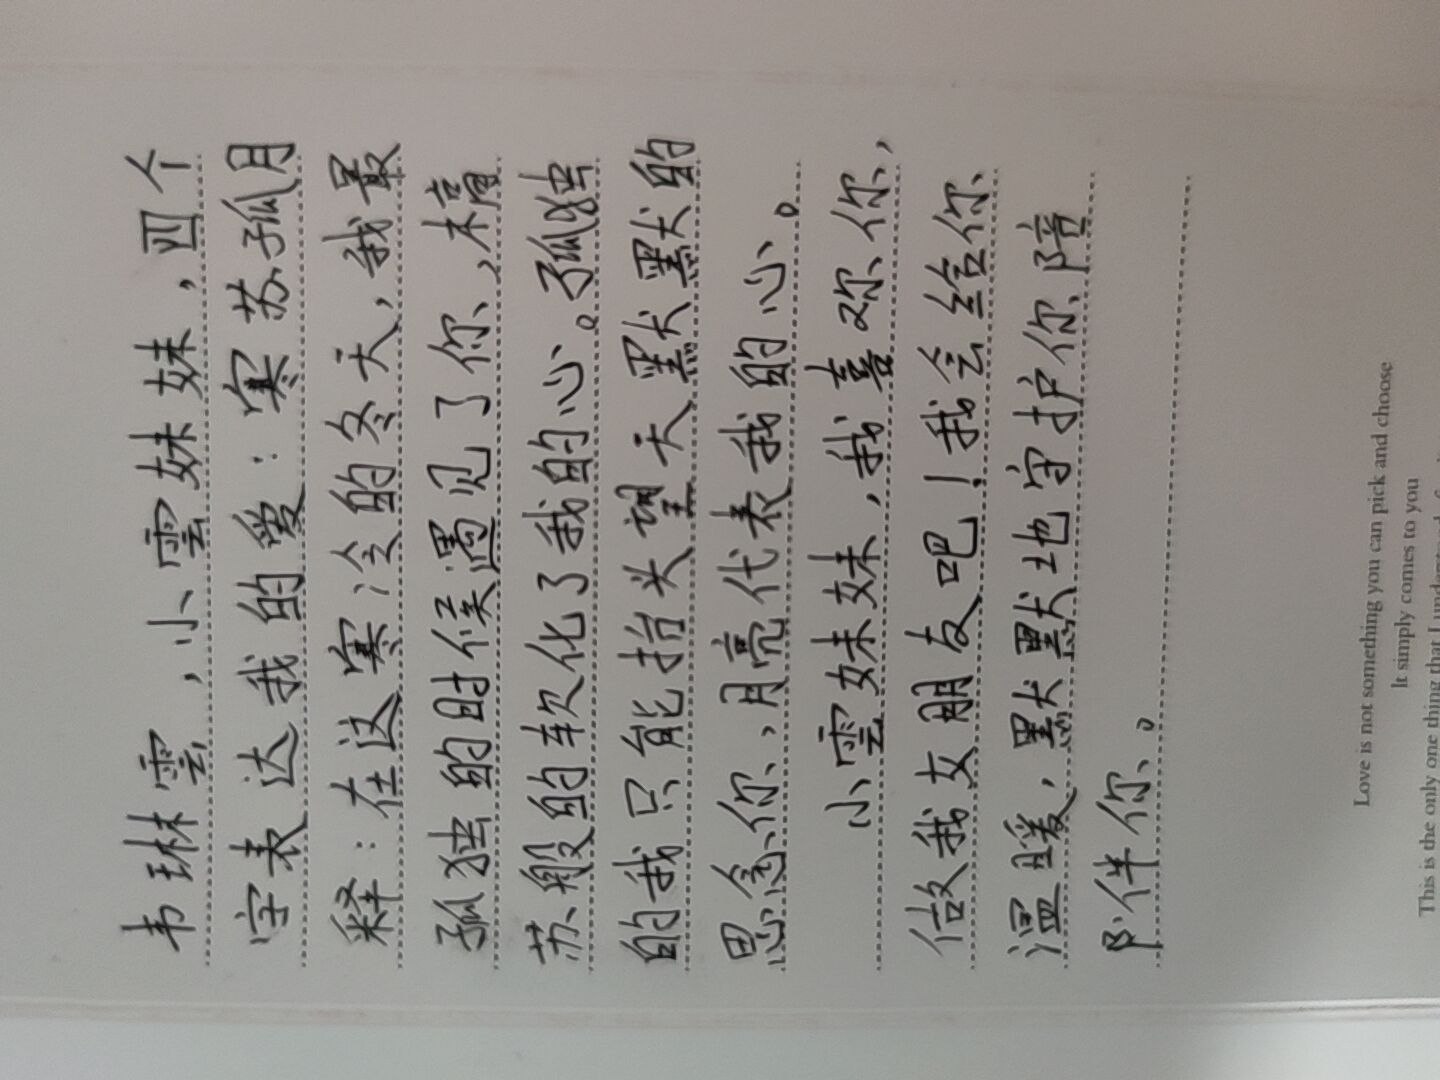 韦琳雲，小雲妹妹，四个
字表达我的爱：寒苏孤月
释：在这寒冷的冬天，我最
孤独的时候遇见了你，槁
苏般的软化了我的心。孤独
的我只能抬头望天默默的
思念你，月亮代表我的心。
小雲妹妹，我喜欢你，
做我女朋友吧！我会给你
温暖，默默地守护你陪
伴你。
Love is not something you can pick and choose
It simply comes to you
This is the only one thing that I